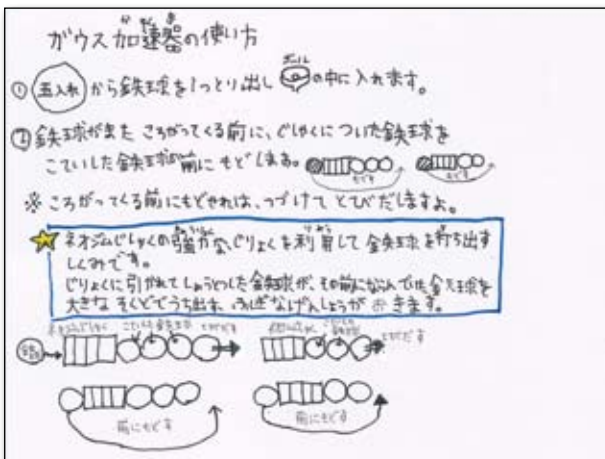 ガウス加速器の使い方
① 玉入れ から鉄球を1つとり出し の中に入れます。
② 鉄球がまた ころがってくる前に、じしゃくについた鉄球を
こていした鉄球の前に もどします。
もどす もどす
※ ころがってくる前にもどせれば、つづけて とびだしますよ。
ネオジムじしゃくの強力な、じりょくを利用して 鉄球を打ち出す
しくみです。
じりょくに引かれてしょうとつした鉄球が、その前にならんでいた鉄球を
大きな そくどでうち出す、ふしぎなげんしょうが おきます。
ネオジムじしゃく こていした鉄球 とびだす
とびだす
前にもどす 前にもどす